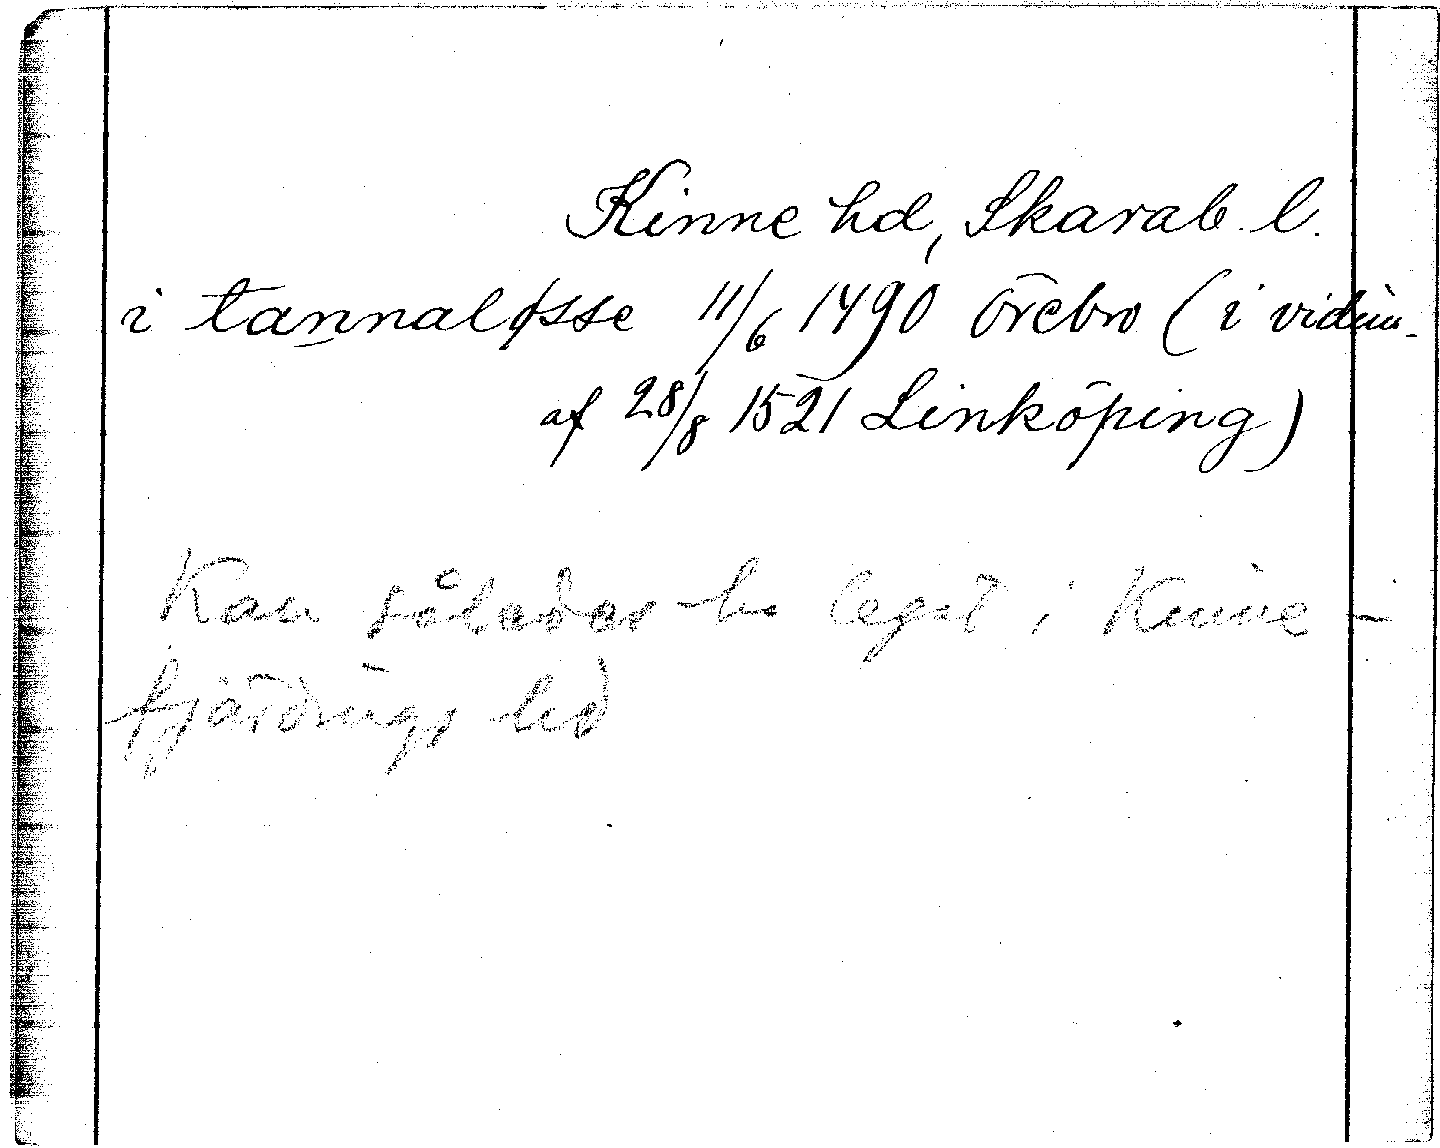 Kinne hd, Skarab. l.
i tannaløsse 11/6 1490 Örebro (i vidim.
af 28/8 1521 Linköping)
Kan således ha legat i Kinne-
fjärdings hd